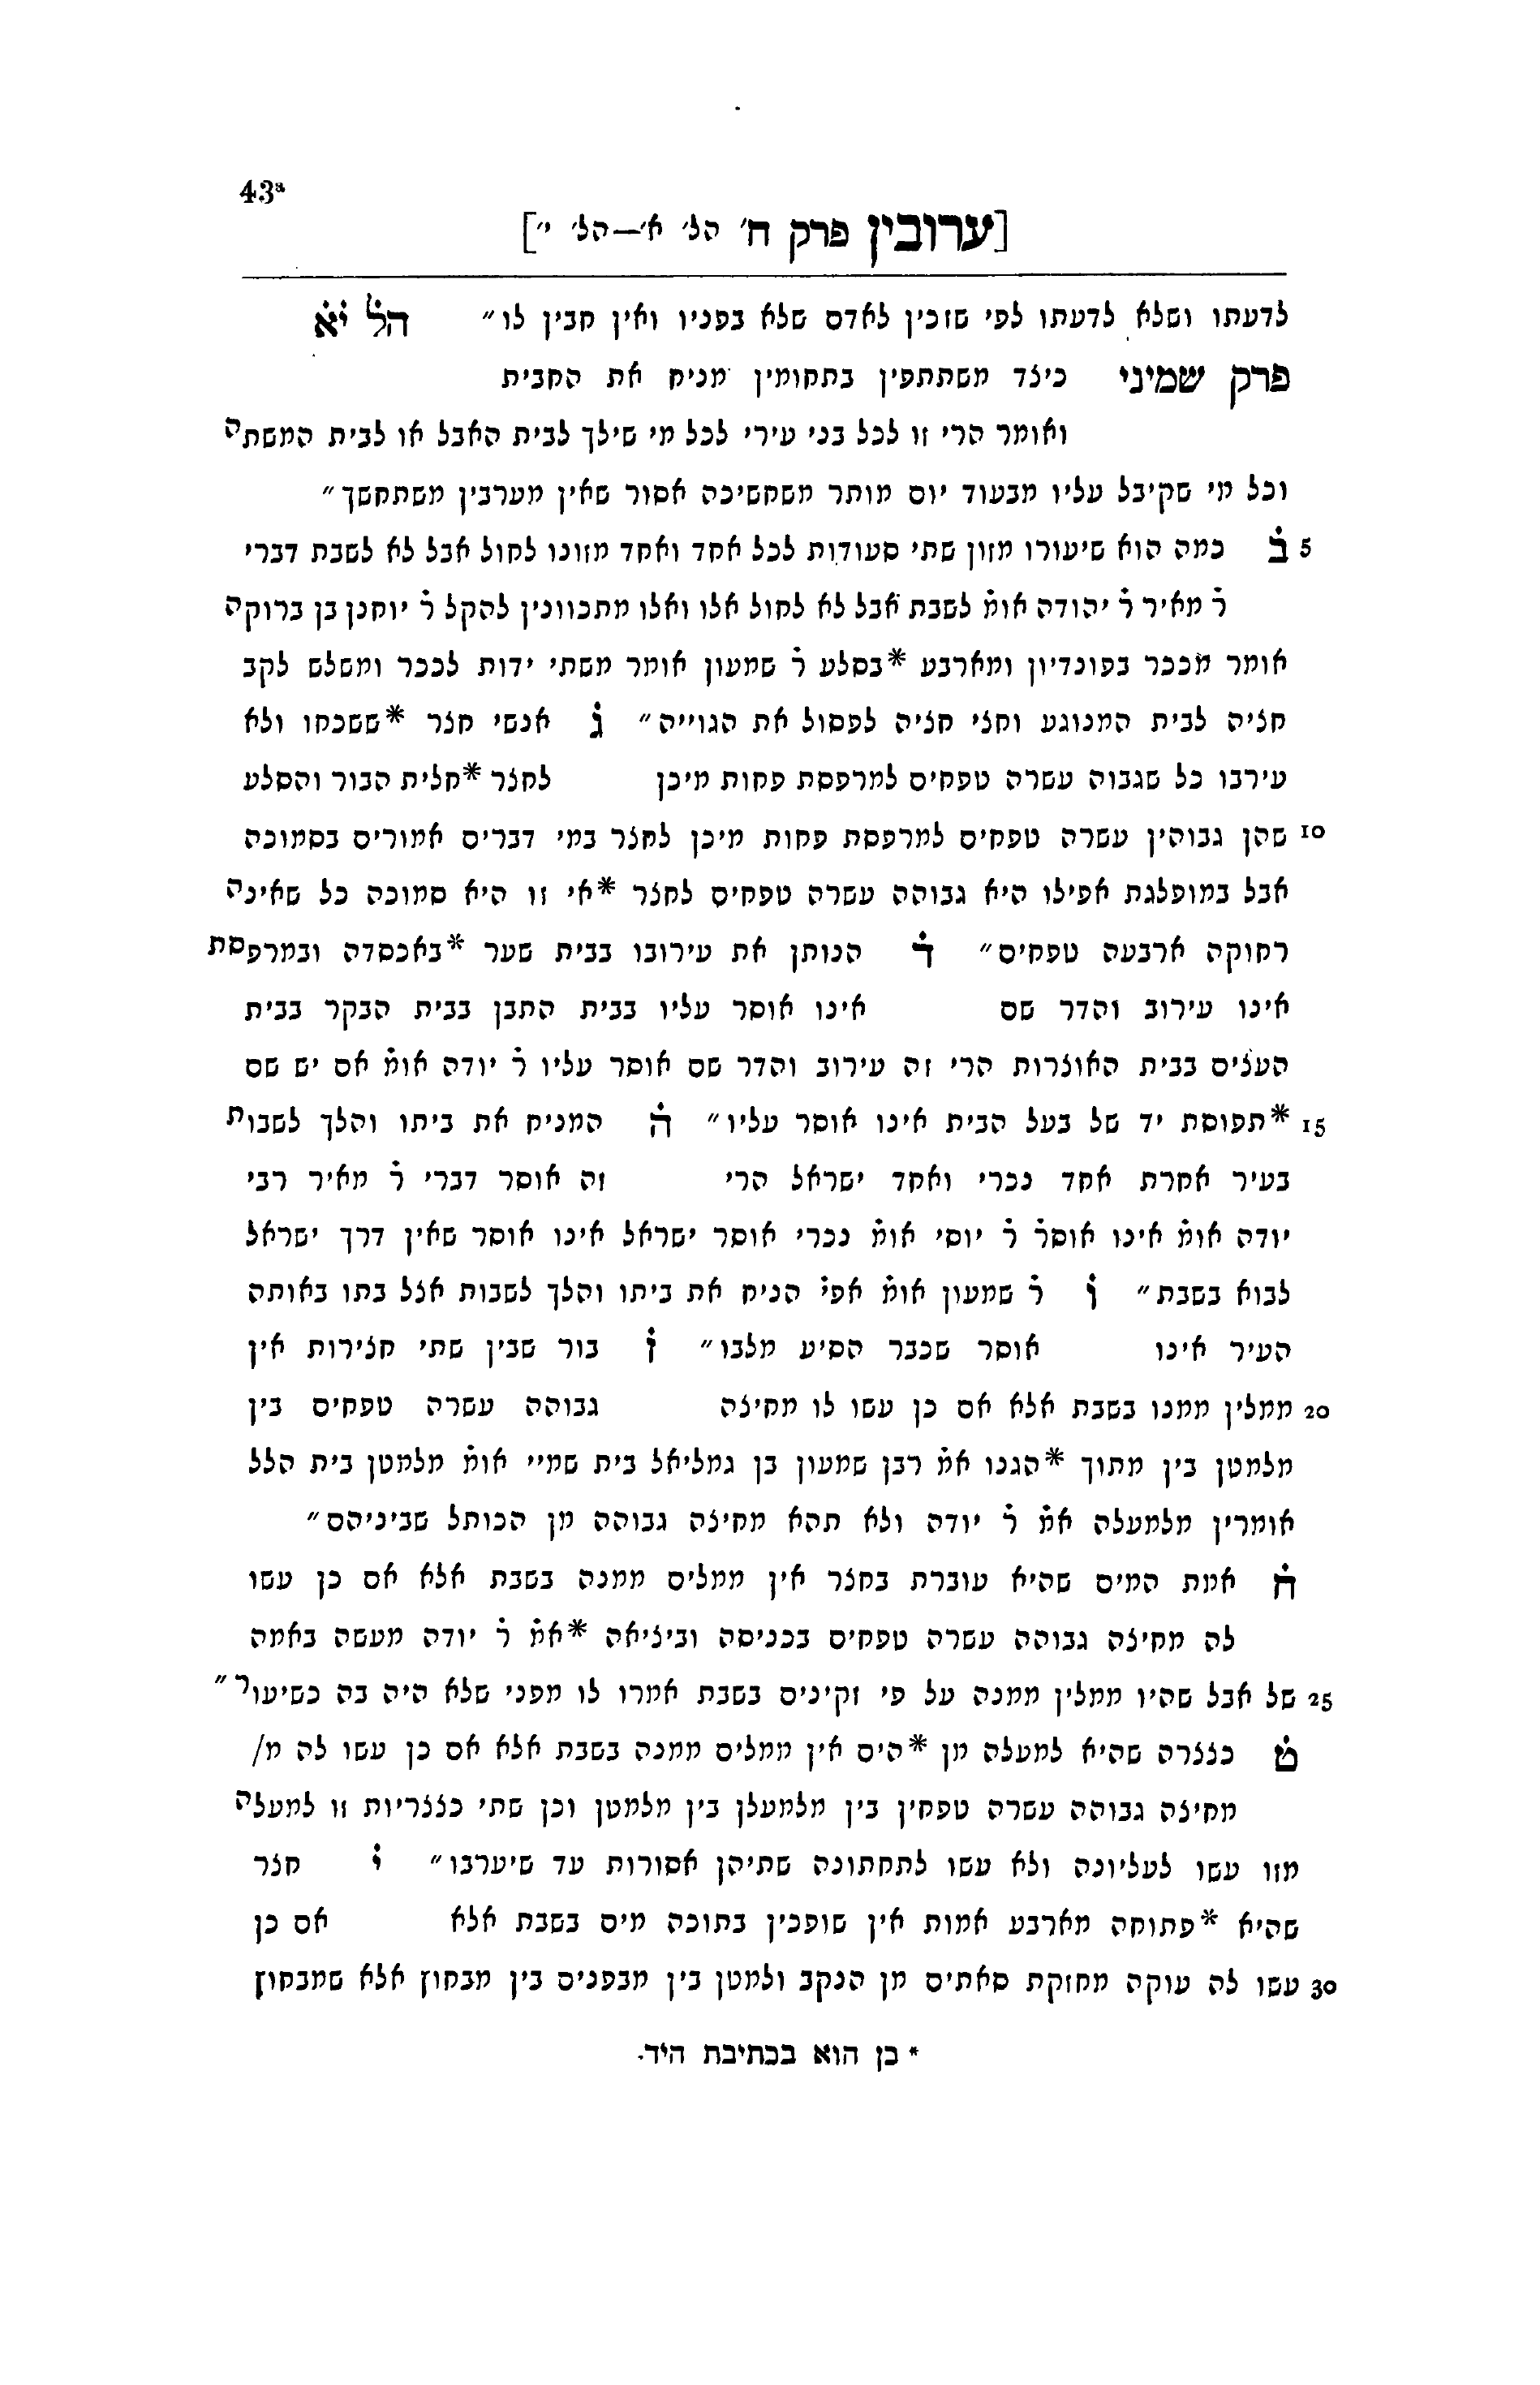 43ª
[ערובין פרק ח' הל' א'—הל' י"]
לדעתו ושלא לדעתו לפי שזכין לאדם שלא בפניו ואין חבין לו״ הל יא
פרק שמיני כיצד משתתפין בתחומין מניח את החבית
ואומר הרי זו לכל בני עירי לכל מי שילך לבית האבל או לבית המשתה
וכל מי שקיבל עליו מבעוד יום מותר משחשיכה אסור שאין מערבין משתחשך״
5 ב̇ כמה הוא שיעורו מזון שתי סעודות לכל אחד ואחד מזונו לחול אבל לא לשבת דברי
ר̇ מאיר ר̇ יהודה אומ̇ לשבת אבל לא לחול אלו ואלו מתכוונין להקל ר̇ יוחנן בן ברוקה
אומר מככר בפונדיון ומארבע *בסלע ר̇ שמעון אומר משתי ידות לככר ומשלש לקב
חציה לבית המנוגע וחצי חציה לפסול את הגוייה״ ג̇ אנשי חצר *ששכחו ולא
עירבו כל שגבוה עשרה טפחים למרפסת פחות מיכן לחצר *חלית הבור והסלע
10 שהן גבוהין עשרה טפחים למרפסת פחות מיכן לחצר במי דברים אמורים בסמוכה
אבל במופלגת אפילו היא גבוהה עשרה טפחים לחצר *אי זו היא סמוכה כל שאינה
רחוקה ארבעה טפחים״ ד̇ הנותן את עירובו בבית שער *באכסדה ובמרפסת
אינו עירוב והדר שם אינו אוסר עליו בבית התבן בבית הבקר בבית
העצים בבית האוצרות הרי זה עירוב והדר שם אוסר עליו ר̇ יודה אומ̇ אם יש שם
15 *תפוסת יד של בעל הבית אינו אוסר עליו״ ה̇ המניח את ביתו והלך לשבות
בעיר אחרת אחד נכרי ואחד ישראל הרי זה אוסר דברי ר̇ מאיר רבי
יודה אומ̇ אינו אוסר̇ ר̇ יוסי אומ̇ נכרי אוסר ישראל אינו אוסר שאין דרך ישראל
לבוא בשבת״ ו̇ ר̇ שמעון אומ̇ אפי̇ הניח את ביתו והלך לשבות אצל בתו באותה
העיר אינו אוסר שכבר הסיע מלבו״ ז̇ בור שבין שתי חצירות אין
20 ממלין ממנו בשבת אלא אם כן עשו לו מחיצה גבוהה עשרה טפחים בין
מלמטן בין מתוך *הגנו אמ̇ רבן שמעון בן גמליאל בית שמיי אומ̇ מלמטן בית הלל
אומרין מלמעלה אמ̇ ר̇ יודה ולא תהא מחיצה גבוהה מן הכותל שביניהם״
ח̇ אמת המים שהיא עוברת בחצר אין ממלים ממנה בשבת אלא אם כן עשו
לה מחיצה גבוהה עשרה טפחים בכניסה וביציאה *אמ̇ ר̇ יודה מעשה באמה
25 של אבל שהיו ממלין ממנה על פי זקינים בשבת אמרו לו מפני שלא היה בה כשיעור״
ט̇ כצצרה שהיא למעלה מן *הים אין ממלים ממנה בשבת אלא אם כן עשו לה מ/
מחיצה גבוהה עשרה טפחין בין מלמעלן בין מלמטן וכן שתי כצצריות זו למעלה
מזו עשו לעליונה ולא עשו לתחתונה שתיהן אסורות עד שיערבו״ י̇ חצר
שהיא *פתוחה מארבע אמות אין שופכין בתוכה מים בשבת אלא אם כן
30 עשו לה עוקה מחזקת סאתים מן הנקב ולמטן בין מבפנים בין מבחוץ אלא שמבחוץ
* כן הוא בכתיבת היד.